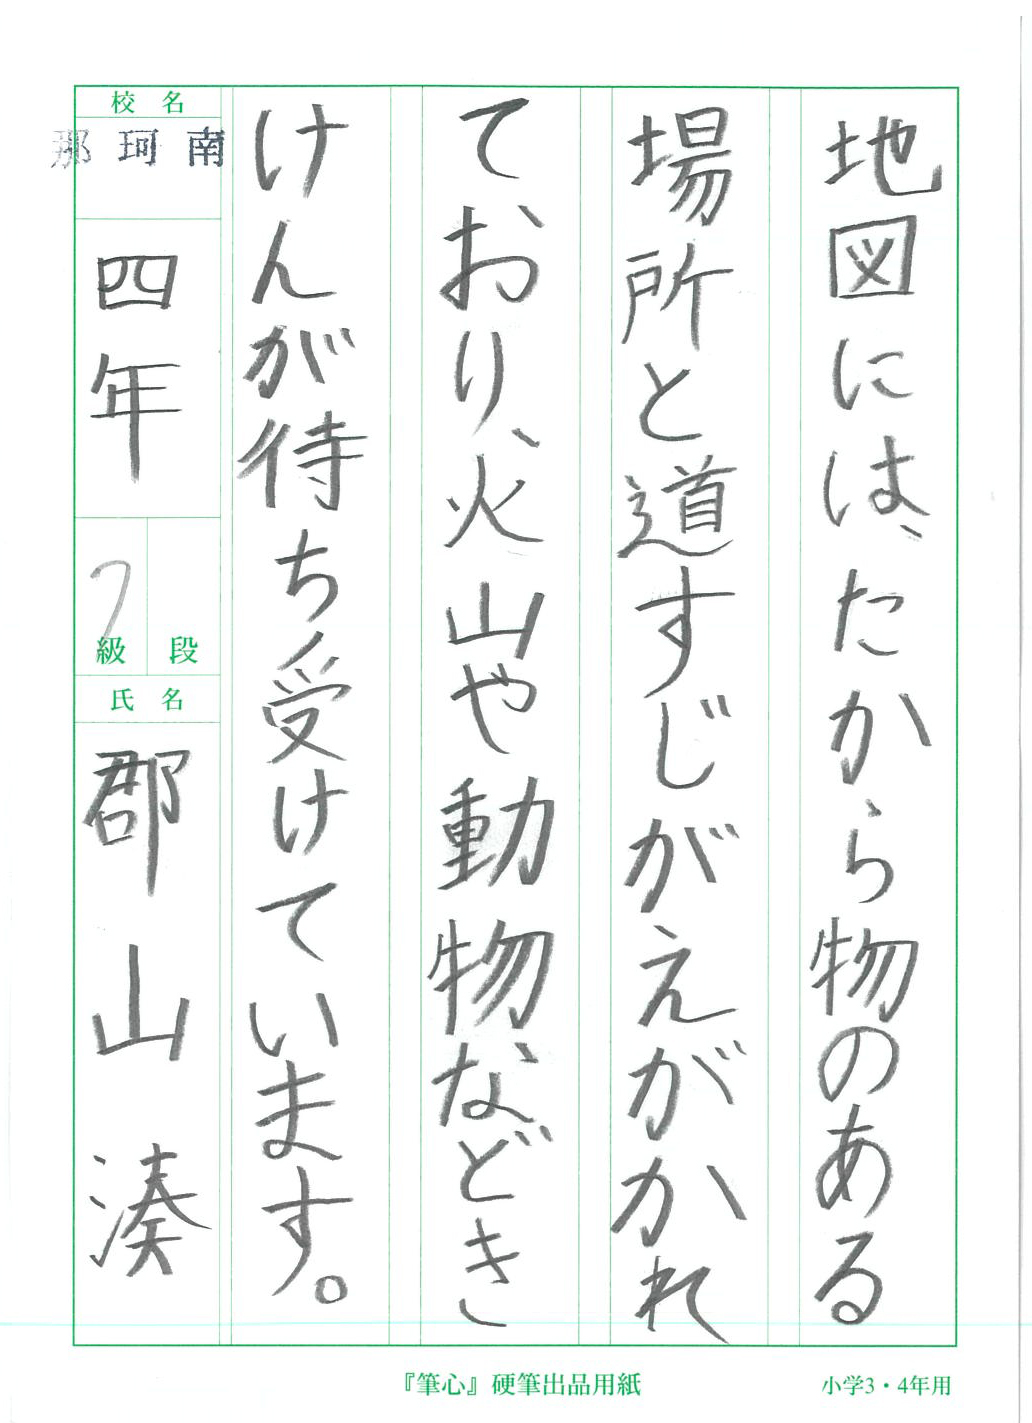 地図には、たから物のある
場所と道すじがえがかれ
ており、火山や動物などき
けんが待ち受けています。
校名
那珂南
四年
段
7級
氏名
郡山 湊
『筆心』硬筆出品用紙
小学3・4年用